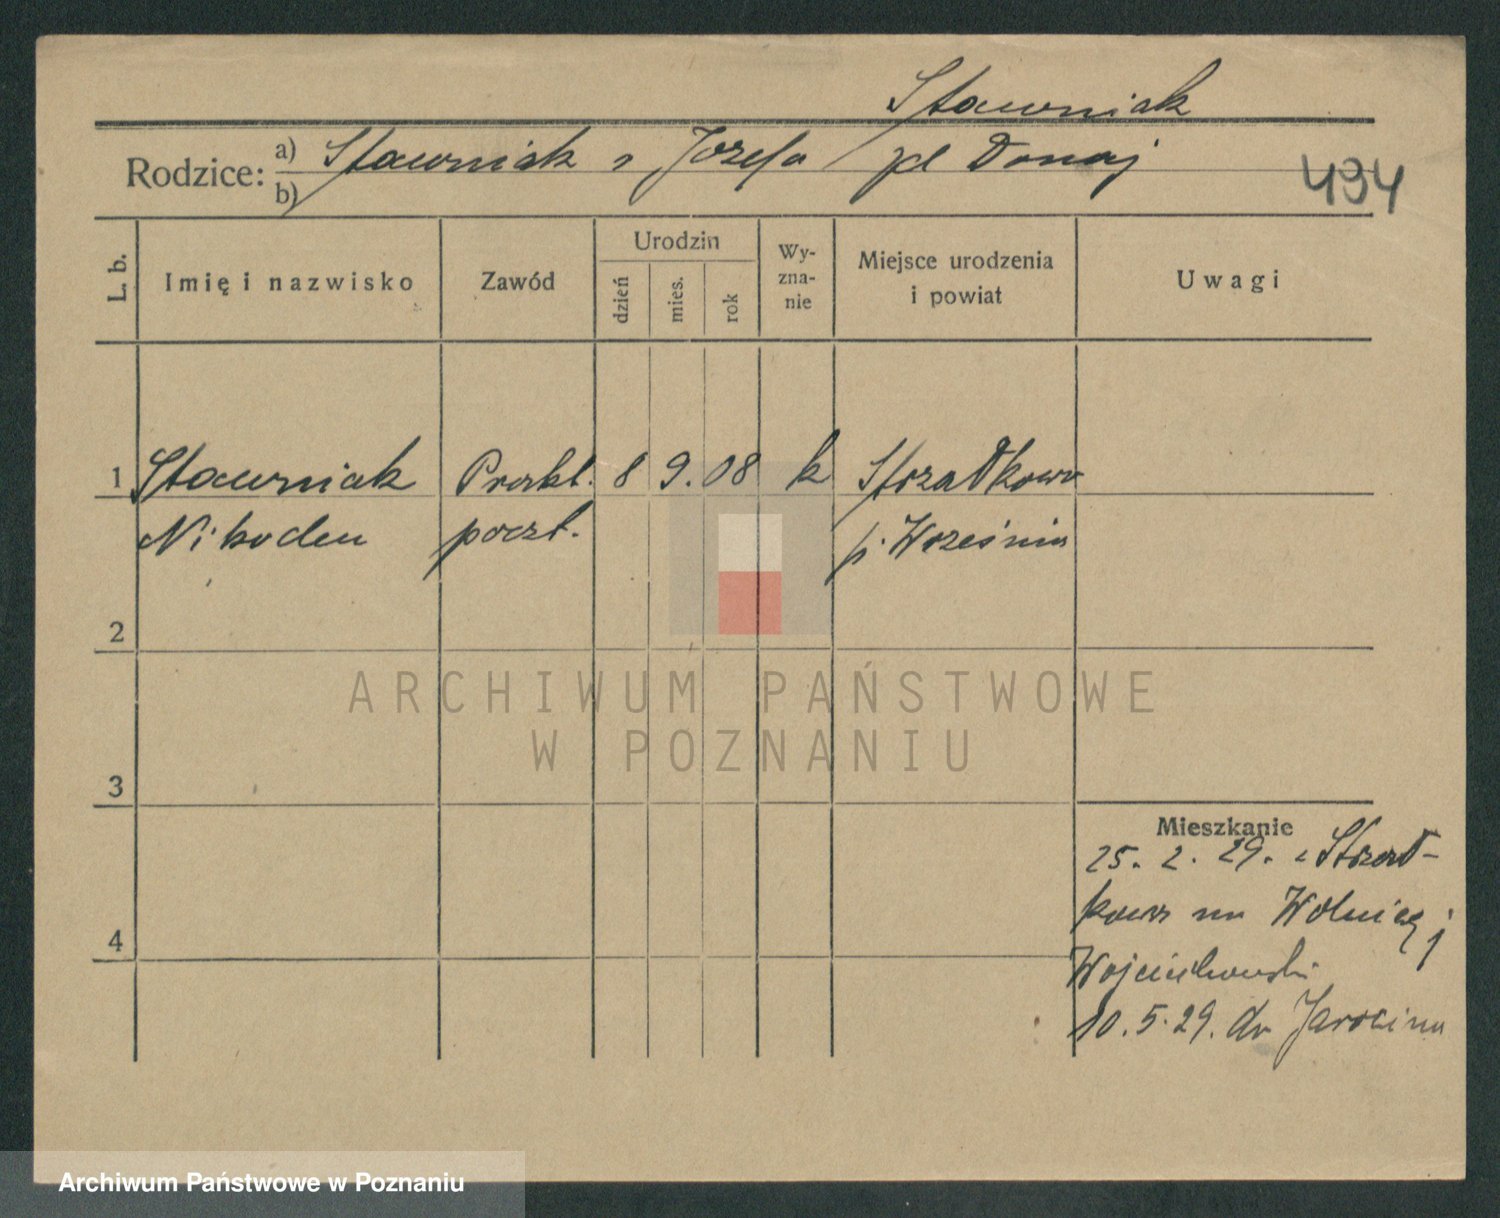 Stawniak
Rodzice: a) Stawniak Józefa pl Donaj
b)
494
L. b. Imię i nazwisko Zawód Urodzin dzień mies. rok Wyznanie Miejsce urodzenia i powiat Uwagi
1 Stawniak Prakt. 8 9. 08 k Strzałkowo
Nikodem poczt. p. Września
2
3
4
Mieszkanie
25. 2. 29. z Strzał-
kowa na Wolnicy
Wojciechowski
10. 5. 29. do Jarocina
ARCHIWUM PAŃSTWOWE
W POZNANIU
Archiwum Państwowe w Poznaniu